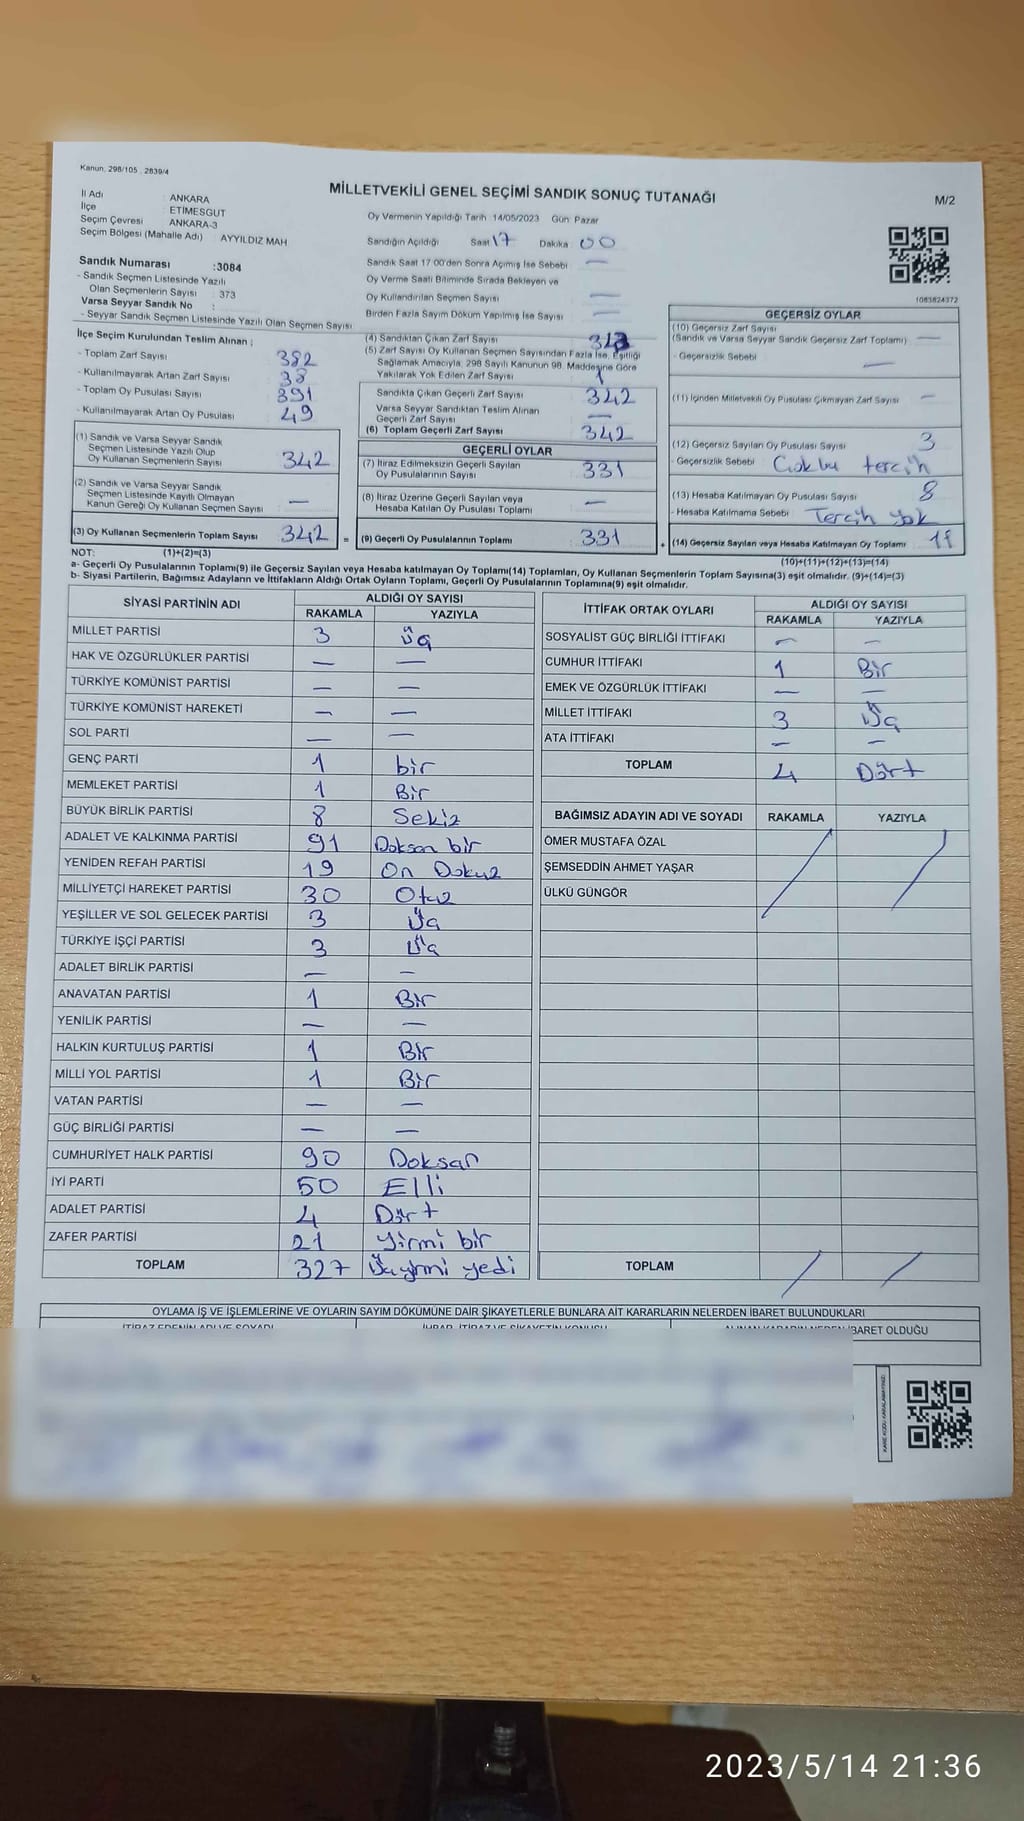 Kanun, 298/105 , 2839/4
MİLLETVEKİLİ GENEL SEÇİMİ SANDIK SONUÇ TUTANAĞI
M/2
İl Adı : ANKARA
İlçe : ETİMESGUT
Seçim Çevresi : ANKARA-3
Seçim Bölgesi (Mahalle Adı) : AYYILDIZ MAH
Oy Vermenin Yapıldığı Tarih 14/05/2023 Gün: Pazar
Sandığın Açıldığı Saat 17 Dakika : 00
Sandık Saat 17:00'den Sonra Açılmış İse Sebebi : —
Oy Verme Saati Bitiminde Sırada Bekleyen ve
Oy Kullandırılan Seçmen Sayısı : —
Birden Fazla Sayım Döküm Yapılmış İse Sayısı : —
Sandık Numarası :3084
- Sandık Seçmen Listesinde Yazılı
Olan Seçmenlerin Sayısı : 373
Varsa Seyyar Sandık No :
- Seyyar Sandık Seçmen Listesinde Yazılı Olan Seçmen Sayısı :
1083824372
İlçe Seçim Kurulundan Teslim Alınan ;
- Toplam Zarf Sayısı : 382
- Kullanılmayarak Artan Zarf Sayısı : 38
- Toplam Oy Pusulası Sayısı : 391
- Kullanılmayarak Artan Oy Pusulası : 49
(1) Sandık ve Varsa Seyyar Sandık
Seçmen Listesinde Yazılı Olup
Oy Kullanan Seçmenlerin Sayısı : 342
(2) Sandık ve Varsa Seyyar Sandık
Seçmen Listesinde Kayıtlı Olmayan
Kanun Gereği Oy Kullanan Seçmen Sayısı : —
(3) Oy Kullanan Seçmenlerin Toplam Sayısı : 342 =
(4) Sandıktan Çıkan Zarf Sayısı :
(5) Zarf Sayısı Oy Kullanan Seçmen Sayısından Fazla İse, Eşitliği
Sağlamak Amacıyla, 298 Sayılı Kanunun 98. Maddesine Göre
Yakılarak Yok Edilen Zarf Sayısı : 1
Sandıkta Çıkan Geçerli Zarf Sayısı : 342
Varsa Seyyar Sandıktan Teslim Alınan
Geçerli Zarf Sayısı : —
(6) Toplam Geçerli Zarf Sayısı : 342
GEÇERLİ OYLAR
(7) İtiraz Edilmeksizin Geçerli Sayılan
Oy Pusulalarının Sayısı : 331
(8) İtiraz Üzerine Geçerli Sayılan veya
Hesaba Katılan Oy Pusulası Toplamı : —
(9) Geçerli Oy Pusulalarının Toplamı : 331 +
GEÇERSİZ OYLAR
(10) Geçersiz Zarf Sayısı
(Sandık ve Varsa Seyyar Sandık Geçersiz Zarf Toplamı) : —
- Geçersizlik Sebebi : —
(11) İçinden Milletvekili Oy Pusulası Çıkmayan Zarf Sayısı : —
(12) Geçersiz Sayılan Oy Pusulası Sayısı : 3
- Geçersizlik Sebebi : Çoklu tercih
(13) Hesaba Katılmayan Oy Pusulası Sayısı : 8
- Hesaba Katılmama Sebebi : Tercih yok
(14) Geçersiz Sayılan veya Hesaba Katılmayan Oy Toplamı : 11
NOT: (1)+(2)=(3) (10)+(11)+(12)+(13)=(14)
a- Geçerli Oy Pusulalarının Toplamı(9) ile Geçersiz Sayılan veya Hesaba katılmayan Oy Toplamı(14) Toplamları, Oy Kullanan Seçmenlerin Toplam Sayısına(3) eşit olmalıdır. (9)+(14)=(3)
b- Siyasi Partilerin, Bağımsız Adayların ve İttifakların Aldığı Ortak Oyların Toplamı, Geçerli Oy Pusulalarının Toplamına(9) eşit olmalıdır.
SİYASİ PARTİNİN ADI ALDIĞI OY SAYISI
RAKAMLA YAZIYLA
MİLLET PARTİSİ 3 Üç
HAK VE ÖZGÜRLÜKLER PARTİSİ — —
TÜRKİYE KOMÜNİST PARTİSİ — —
TÜRKİYE KOMÜNİST HAREKETİ — —
SOL PARTİ — —
GENÇ PARTİ 1 bir
MEMLEKET PARTİSİ 1 Bir
BÜYÜK BİRLİK PARTİSİ 8 Sekiz
ADALET VE KALKINMA PARTİSİ 91 Doksan bir
YENİDEN REFAH PARTİSİ 19 On Dokuz
MİLLİYETÇİ HAREKET PARTİSİ 30 Otuz
YEŞİLLER VE SOL GELECEK PARTİSİ 3 Üç
TÜRKİYE İŞÇİ PARTİSİ 3 Üç
ADALET BİRLİK PARTİSİ — —
ANAVATAN PARTİSİ 1 Bir
YENİLİK PARTİSİ — —
HALKIN KURTULUŞ PARTİSİ 1 Bir
MİLLİ YOL PARTİSİ 1 Bir
VATAN PARTİSİ — —
GÜÇ BİRLİĞİ PARTİSİ — —
CUMHURİYET HALK PARTİSİ 90 Doksan
İYİ PARTİ 50 Elli
ADALET PARTİSİ 4 Dört
ZAFER PARTİSİ 21 Yirmi bir
TOPLAM 327 Üçyirmi yedi
İTTİFAK ORTAK OYLARI ALDIĞI OY SAYISI
RAKAMLA YAZIYLA
SOSYALİST GÜÇ BİRLİĞİ İTTİFAKI — —
CUMHUR İTTİFAKI 1 Bir
EMEK VE ÖZGÜRLÜK İTTİFAKI — —
MİLLET İTTİFAKI 3 Üç
ATA İTTİFAKI — —
TOPLAM 4 Dört
BAĞIMSIZ ADAYIN ADI VE SOYADI RAKAMLA YAZIYLA
ÖMER MUSTAFA ÖZAL
ŞEMSEDDİN AHMET YAŞAR
ÜLKÜ GÜNGÖR
TOPLAM
OYLAMA İŞ VE İŞLEMLERİNE VE OYLARIN SAYIM DÖKÜMÜNE DAİR ŞİKAYETLERLE BUNLARA AİT KARARLARIN NELERDEN İBARET BULUNDUKLARI
İTİRAZ EDENİN ADI VE SOYADI İHBAR, İTİRAZ VE ŞİKAYETİN KONUSU ALINAN KARARIN NEDEN İBARET OLDUĞU
2023/5/14 21:36